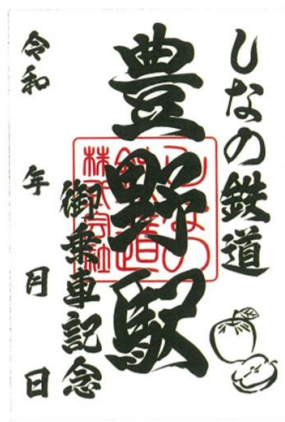 しなの鉄道
豊野駅
御乗車記念
令和 年 月 日
しなの
鉄道
株式会社